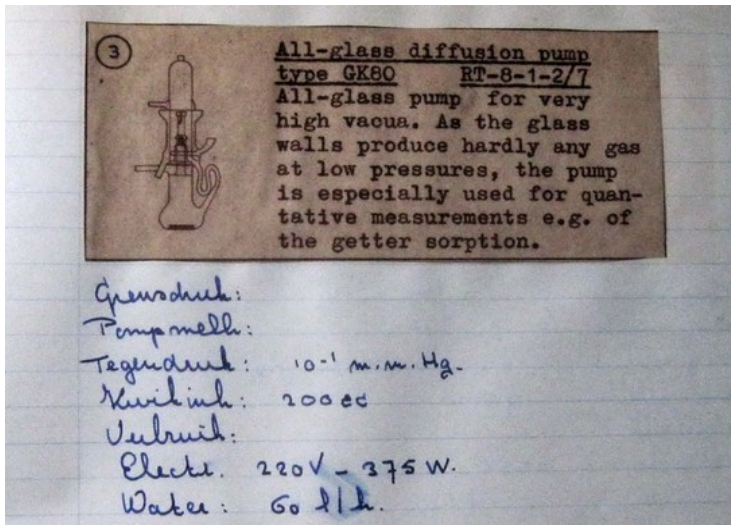 3
All-glass diffusion pump
type GK80 RT-8-1-2/7
All-glass pump for very
high vacua. As the glass
walls produce hardly any gas
at low pressures, the pump
is especially used for quan-
tative measurements e.g. of
the getter sorption.
Grensdruk:
Pompsnelh:
Tegendruk: 10-1 m.m. Hg.
Kwikinh: 200 cc
Verbruik:
Electr. 220V - 375 W.
Water: 60 l/h.